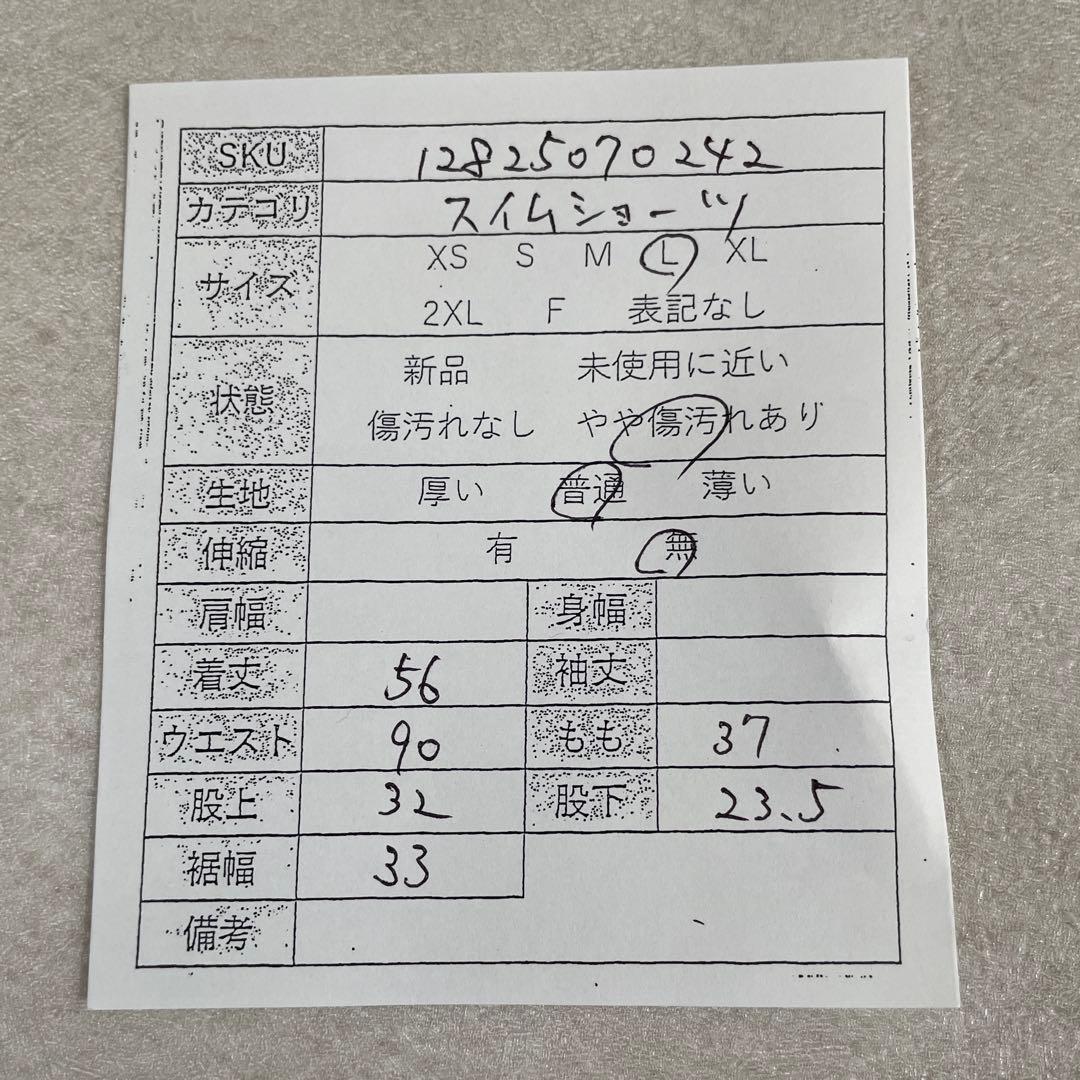 SKU 12825070242
カテゴリ スイムショーツ
サイズ XS S M L XL
2XL F 表記なし
状態 新品 未使用に近い
傷汚れなし やや傷汚れあり
生地 厚い 普通 薄い
伸縮 有 無
肩幅 身幅
着丈 56 袖丈
ウエスト 90 もも 37
股上 32 股下 23.5
裾幅 33
備考